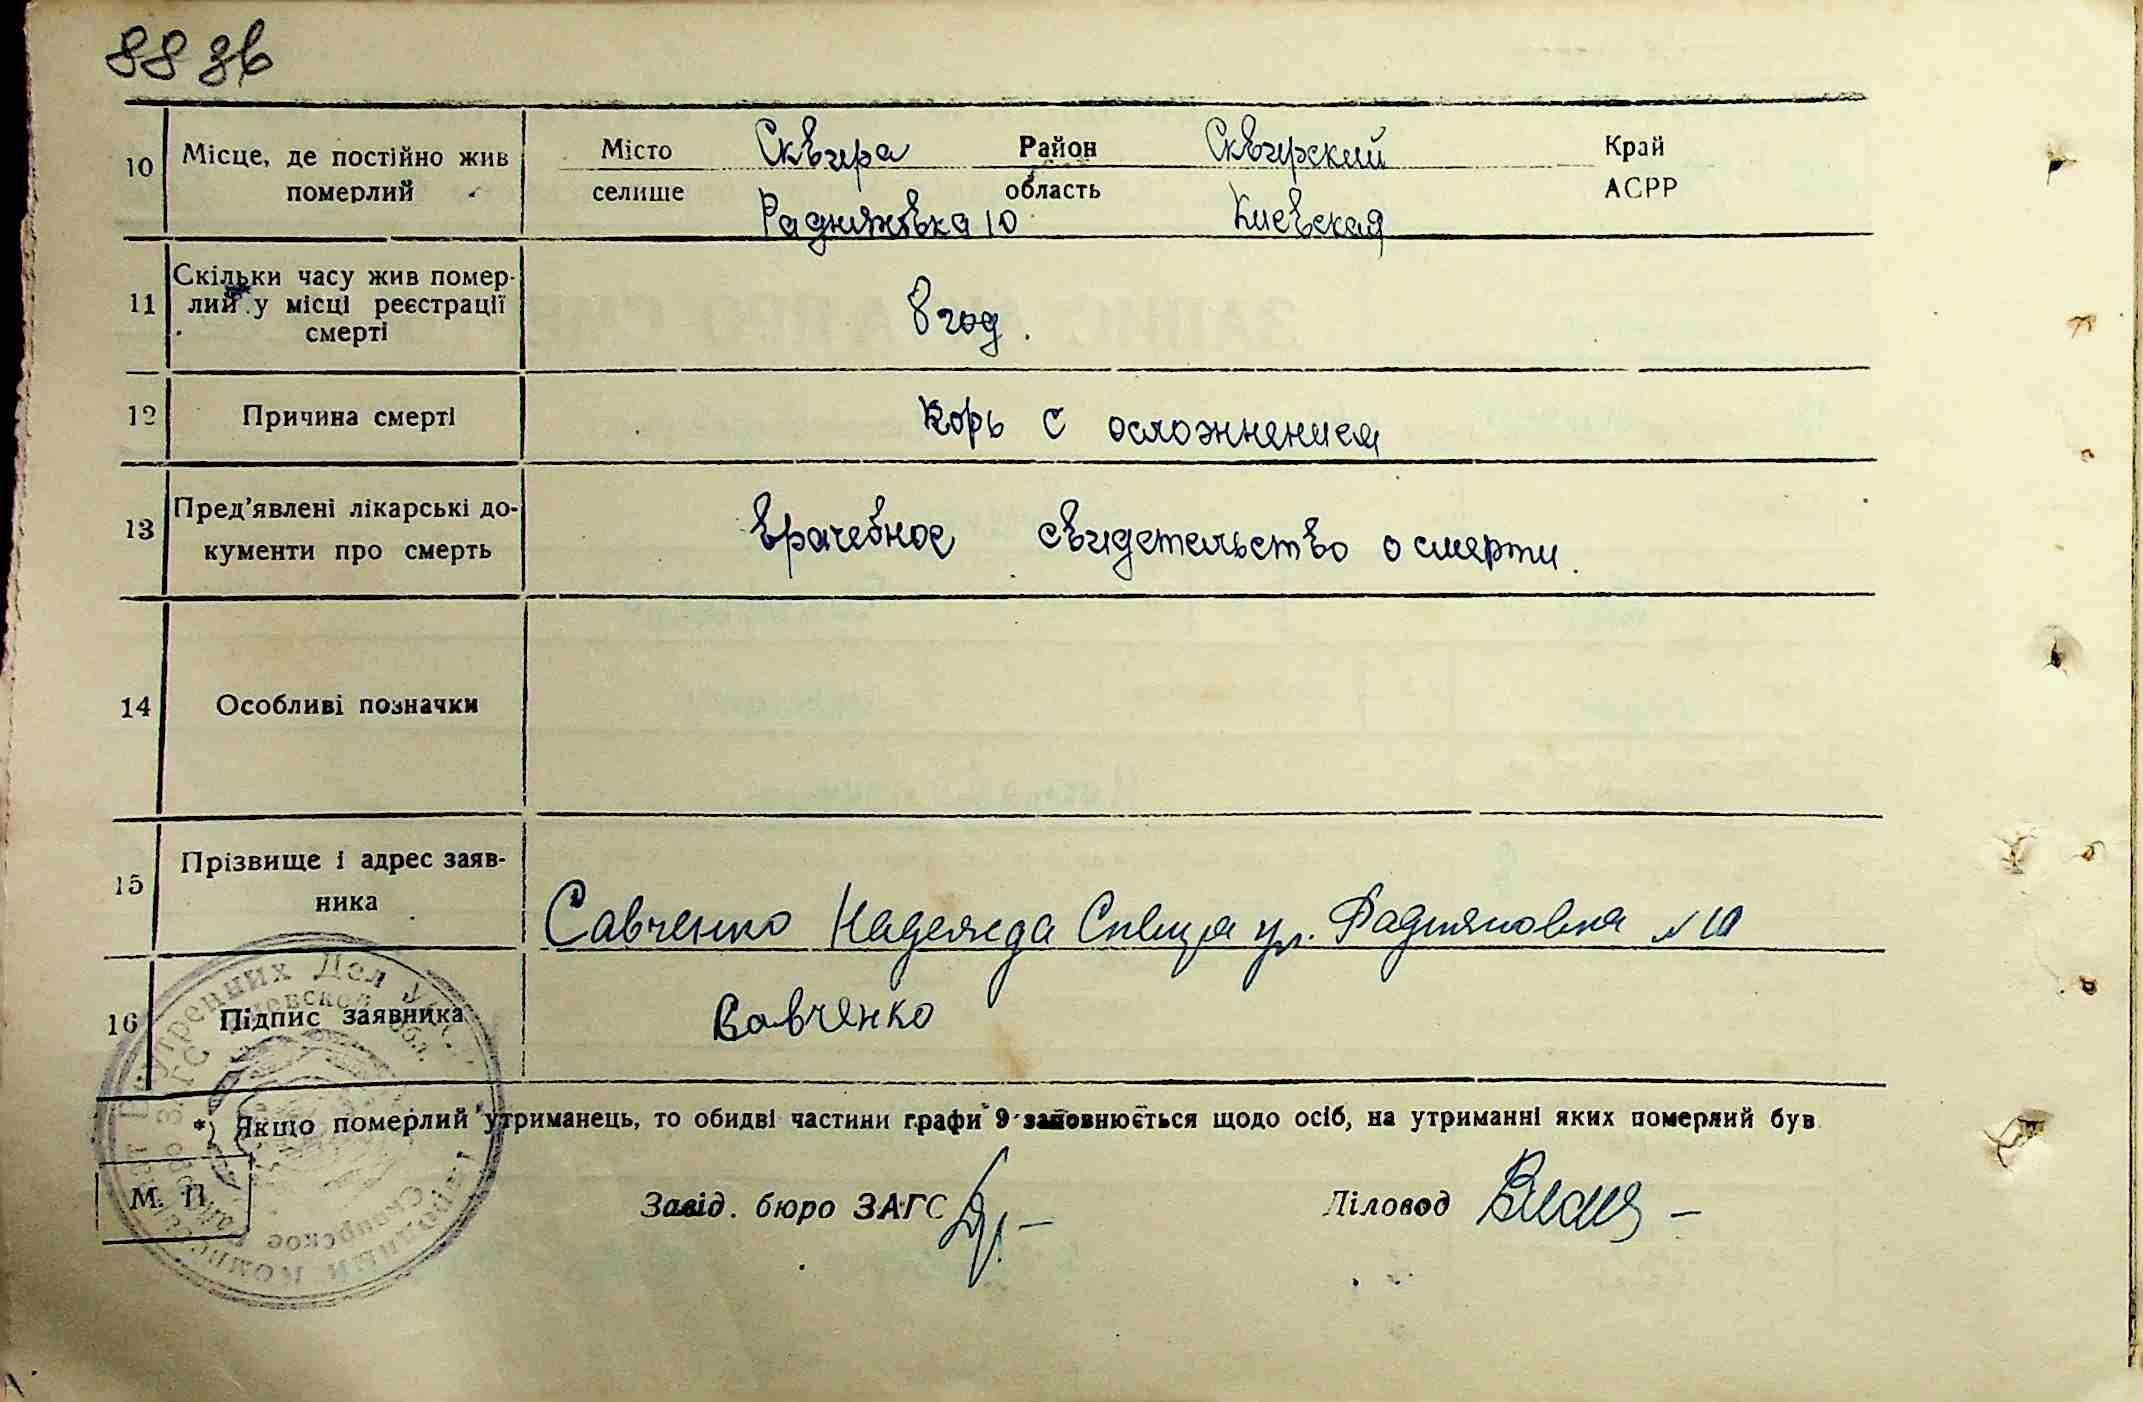 88 зв
10 Місце, де постійно жив Місто Сквира Район Сквирский Край
померлий селище область АСРР
Радняховка 10 Киевская
Скільки часу жив помер-
11 лий у місці реєстрації 8 год.
смерті
12 Причина смерті Корь с осложнением
Пред'явлені лікарські до-
13 врачебное свидетельство о смерти.
кументи про смерть
14 Особливі позначки
Прізвище і адрес заяв-
15
ника Савченко Надежда Сквира ул. №10
16 Підпис заявника Савченко
*) Якщо померлий утриманець, то обидві частини графи 9 заповнюється щодо осіб, на утриманні яких померлий був
М. П. Завід. бюро ЗАГС Діловод
Внутренних Дел
Киевской обл.
Сквирское